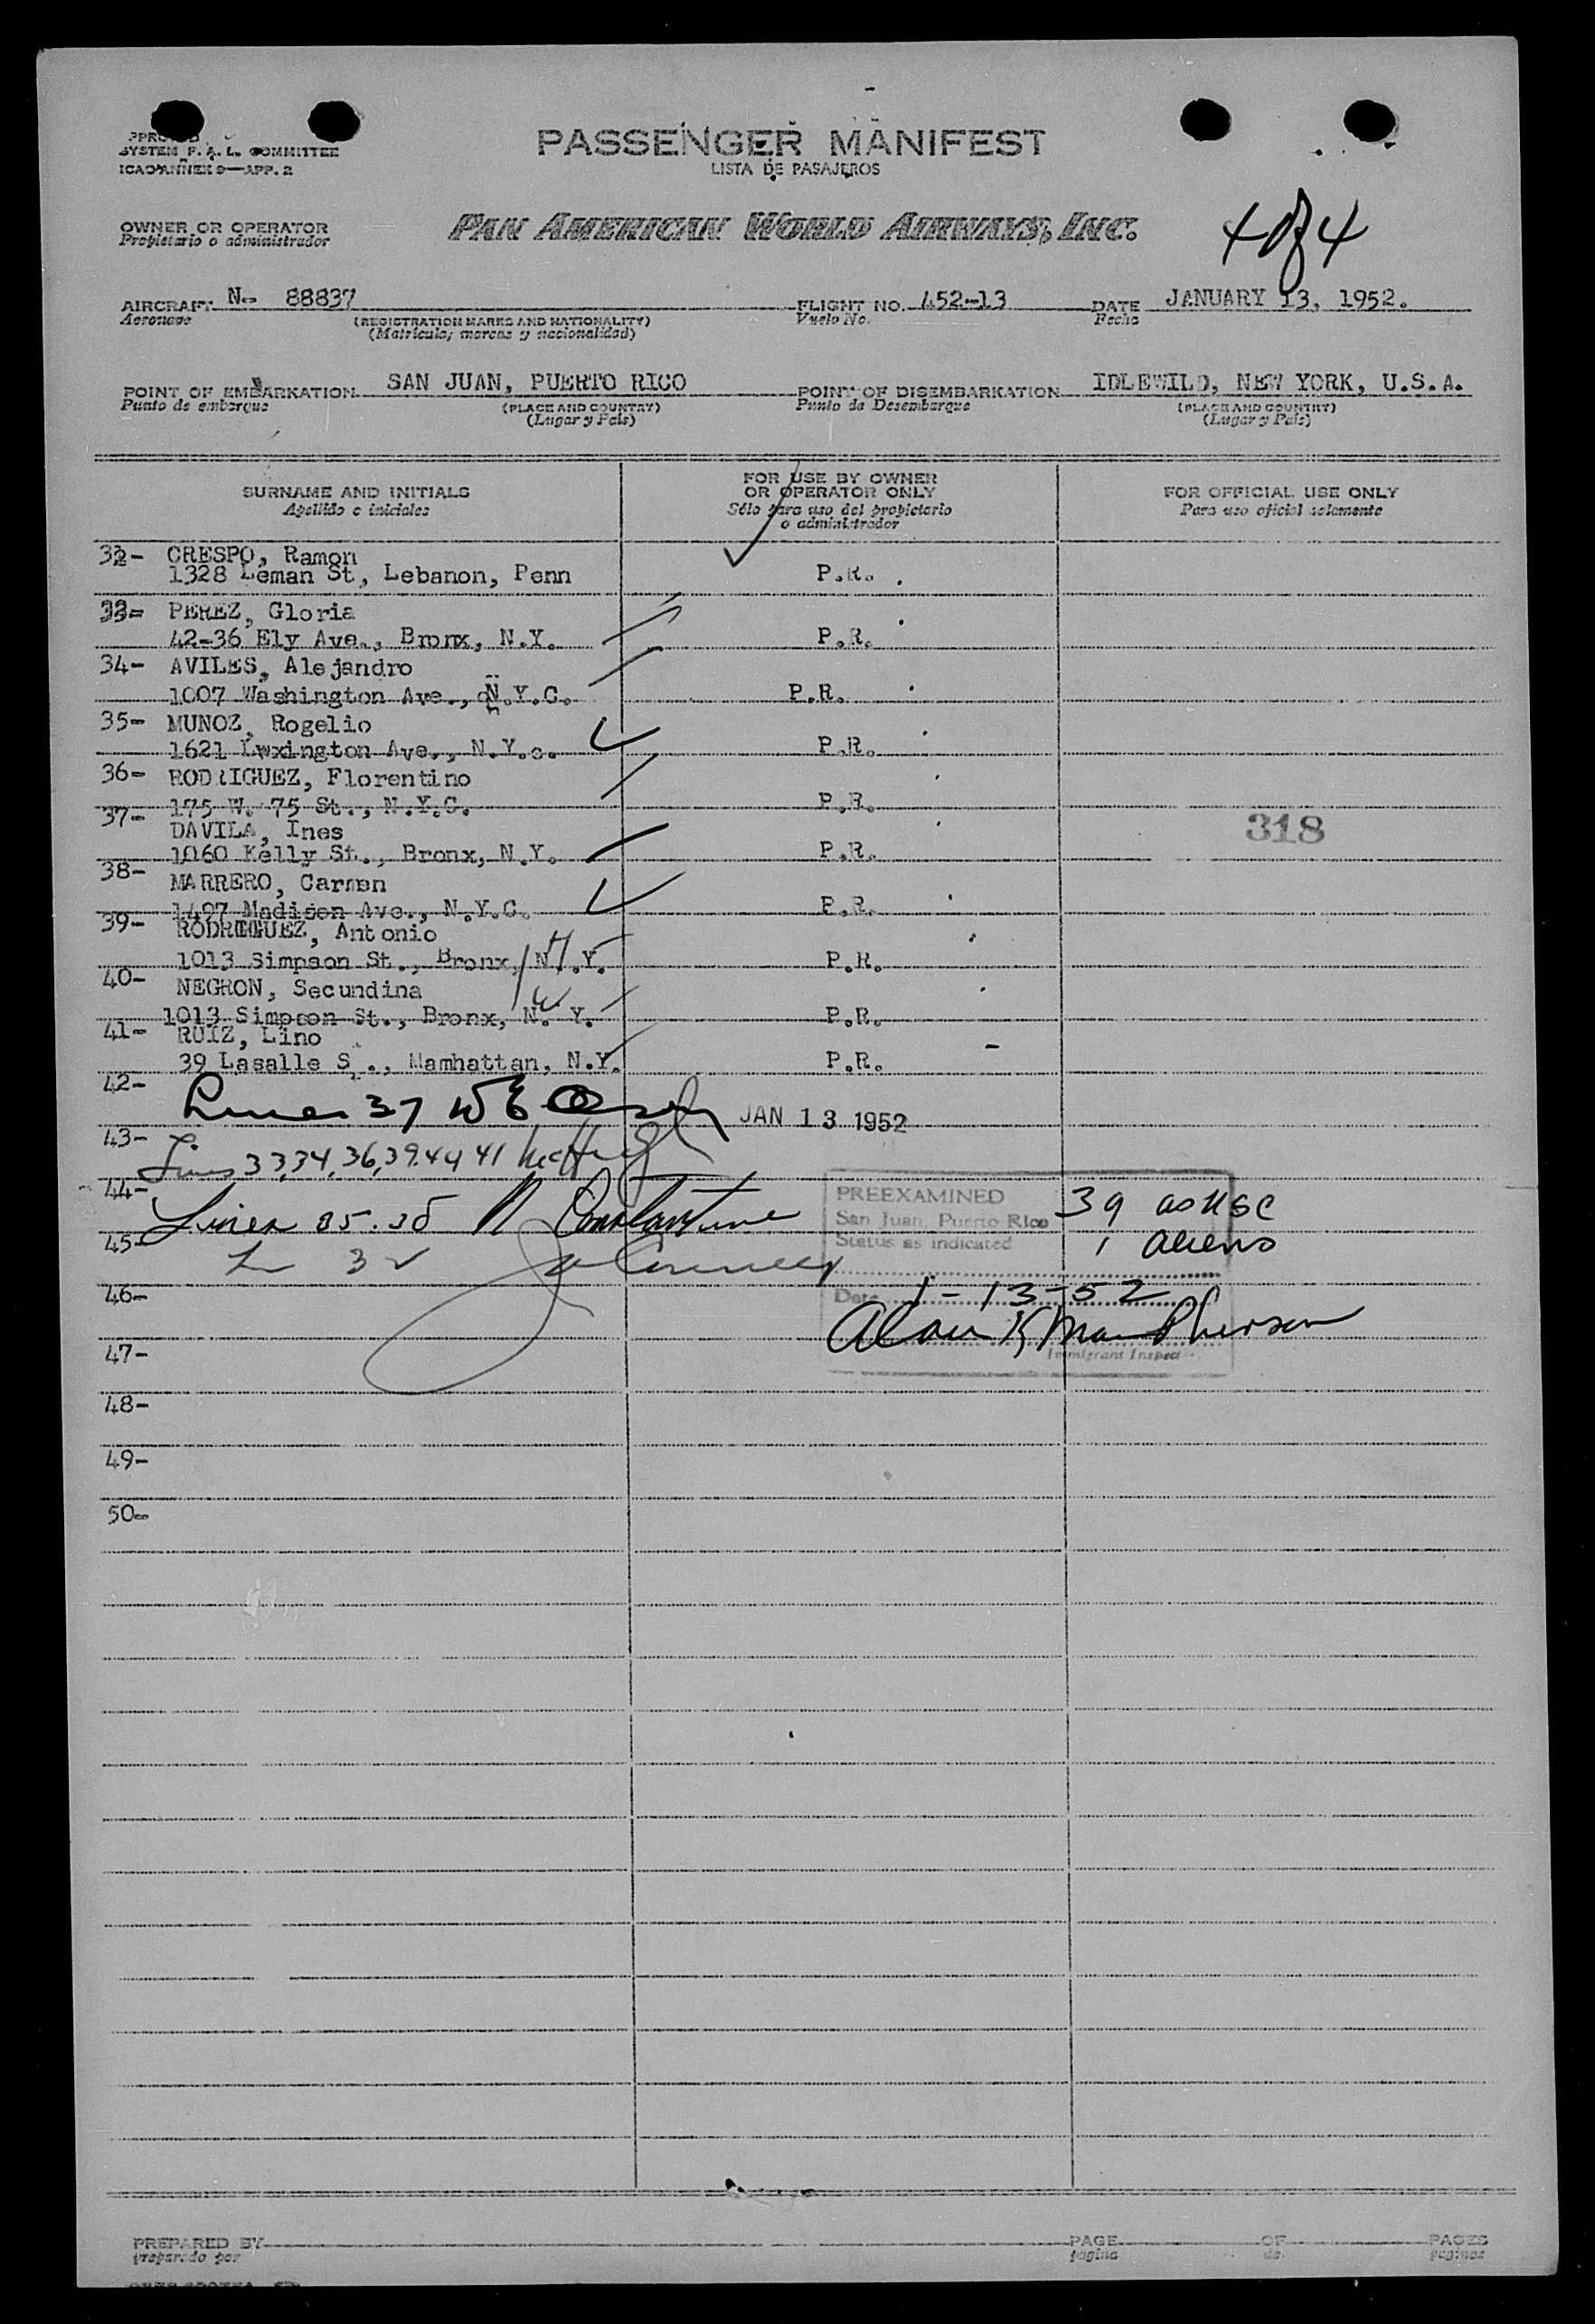 SYSTEM F. A. L. COMMITTEE
ICAO ANNEX 9—APP. 2
PASSENGER MANIFEST
LISTA DE PASAJEROS
OWNER OR OPERATOR
Propietario o administrador
PAN AMERICAN WORLD AIRWAYS, INC.
4 of 4
AIRCRAFT N- 88837 FLIGHT NO. 452-13 DATE JANUARY 13, 1952.
Aeronave (REGISTRATION MARKS AND NATIONALITY) Vuelo No. Fecha
(Matricula, marcas y nacionalidad)
POINT OF EMBARKATION SAN JUAN, PUERTO RICO POINT OF DISEMBARKATION IDLEWILD, NEW YORK, U.S.A.
Punto de embarque (PLACE AND COUNTRY) Punto de Desembarque (PLACE AND COUNTRY)
(Lugar y Pais) (Lugar y Pais)
SURNAME AND INITIALS FOR USE BY OWNER OR OPERATOR ONLY FOR OFFICIAL USE ONLY
Apellido e iniciales Sólo para uso del propietario o administrador Para uso oficial solamente
32- CRESPO, Ramon
1328 Leman St, Lebanon, Penn P.R.
33- PEREZ, Gloria
42-36 Ely Ave., Bronx, N.Y. P.R.
34- AVILES, Alejandro
1007 Washington Ave., N.Y.C. P.R.
35- MUNOZ, Rogelio
1621 Lwxington Ave., N.Y.c. P.R.
36- RODRIGUEZ, Florentino
175 W. 75 St., N.Y.C. P.R.
37- DAVILA, Ines
1060 Kelly St., Bronx, N.Y. P.R.
318
38- MARRERO, Carmen
1497 Madison Ave., N.Y.C. P.R.
39- RODRIGUEZ, Antonio
1013 Simpson St., Bronx, N.Y. P.R.
40- NEGRON, Secundina
1013 Simpson St., Bronx, N. Y. P.R.
41- RUIZ, Lino
39 Lasalle S ., Mamhattan, N.Y. P.R.
42-
JAN 13 1952
43-
Lines 33,34,36,39,40 41
44-
Lines 35.38 N Constantine
PREEXAMINED
San Juan, Puerto Rico
Status as indicated
39 as USC
1 aliens
45-
L 32
46-
Date 1-13-52
Immigrant Inspec
47-
48-
49-
50-
PREPARED BY PAGE OF PAGES
preparado por pagina de paginas